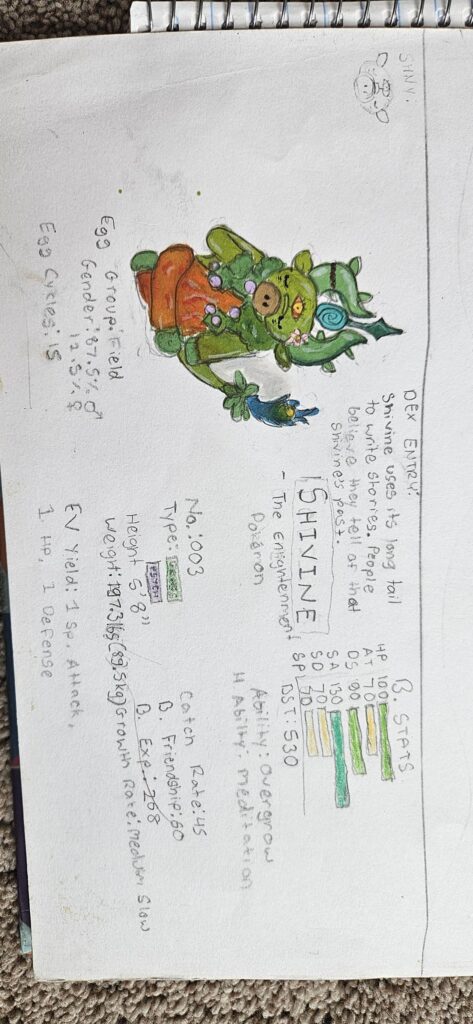 SHNY.
DEX ENTRY:
Shivine uses its long tail
to write stories. People
believe they tell of that
shivine's past.
SHIVINE
- The Enlightenment
Pokémon
No.:003
Type: GRASS
PSYCH
Height 5'8"
Weight: 197.3 lbs (89.5kg)
B. STATS
HP 100
AT 70
DS 90
SA 130
SD 70
SP 70
BST: 530
Ability: Overgrow
H Ability: Meditation
Catch Rate: 45
B. Friendship: 60
B. Exp.: 268
Growth Rate: Medium Slow
Egg Group: Field
Gender: 87.5% ♂
12.5% ♀
Egg Cycles: 15
EV Yield: 1 Sp. Attack,
1 HP, 1 Defense